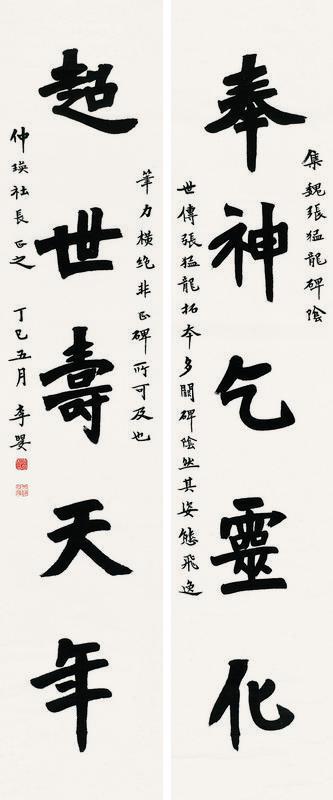 集魏張猛龍碑陰
奉神乞靈化
世傳張猛龍拓本多闕碑陰然其姿態飛逸
筆力橫绝非正碑所可及也
超世壽天年
仲瑛社長正之 丁巳五月 李嬰